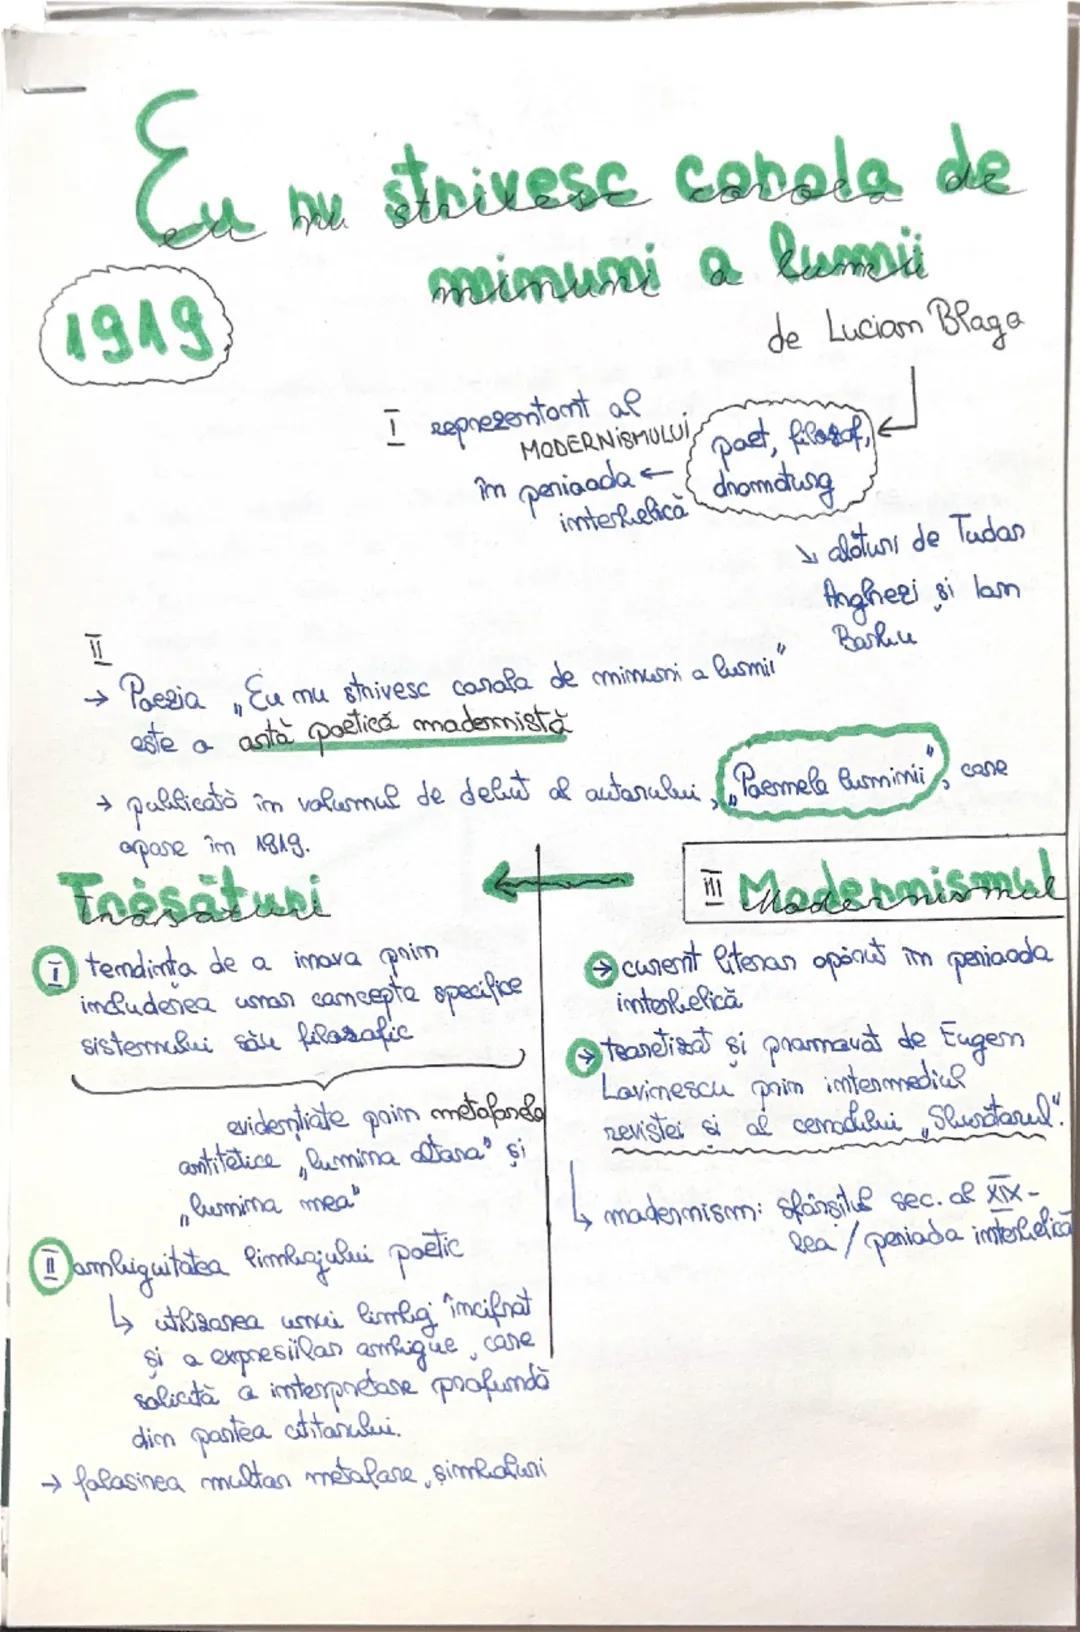 Eu nu strivesc corola de
minuni a lumii
1919
de Lucian Blaga
I reprezentant al
MODERNISMULUI
în perioada ←
interbelică
poet, filozof,
dramaturg
↘ alături de Tudor
Arghezi și Ion
Barbu
II
→ Poezia „Eu nu strivesc corola de minuni a lumii"
este o artă poetică modernistă
→ publicată în volumul de debut al autorului, „Poemele luminii", care
apare în 1919.
Trăsături
I tendința de a inova prin
includerea unor concepte specifice
sistemului său filozofic
evidențiate prin metaforele
antitetice „lumina altora" și
„lumina mea"
II ambiguitatea limbajului poetic
↳ utilizarea unui limbaj încifrat
și a expresiilor ambigue, care
solicită o interpretare profundă
din partea cititorului.
→ folosirea multor metafore, simboluri
III Modernismul
→ curent literar apărut în perioada
interbelică
→ teoretizat și promovat de Eugen
Lovinescu prin intermediul
revistei și al cenaclului „Sburătorul".
↳ modernism: sfârșitul sec. al XIX-
lea / perioada interbelică